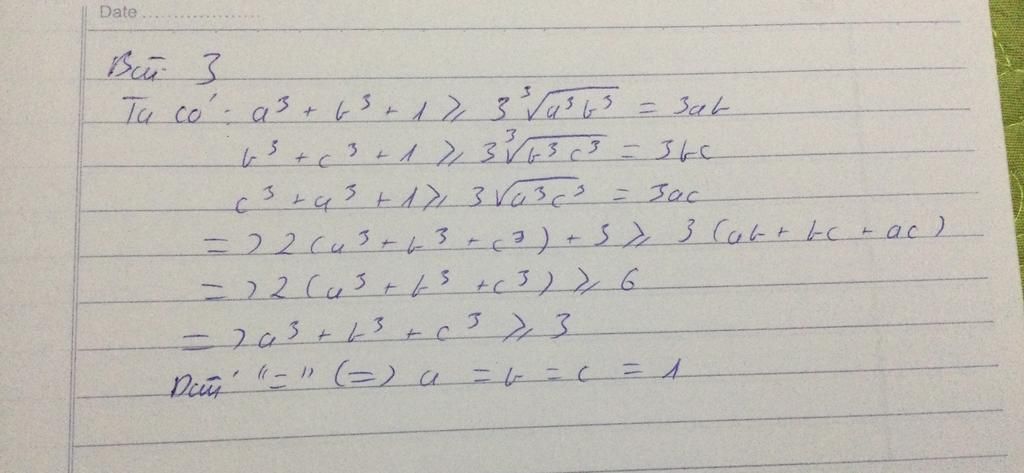 Date
Bài 3
Ta có: a³ + b³ + 1 ≥ 3∛(a³b³) = 3ab
b³ + c³ + 1 ≥ 3∛(b³c³) = 3bc
c³ + a³ + 1 ≥ 3√(a³c³) = 3ac
=> 2(a³ + b³ + c³) + 3 ≥ 3(ab + bc + ac)
=> 2(a³ + b³ + c³) ≥ 6
=> a³ + b³ + c³ ≥ 3
Dấu "=" (=) a = b = c = 1